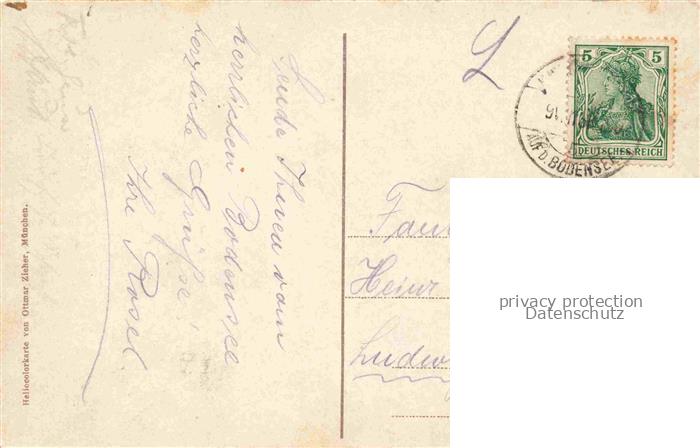 Sende Ihnen vom
herrlichen Bodensee
herzliche Grüße!
Ihre Rosel.
Heliocolorkarte von Ottmar Zieher, München.
L
5 5
DEUTSCHES REICH
AUF D. BODENSEE
Heinr
Ludw
privacy protection
Datenschutz